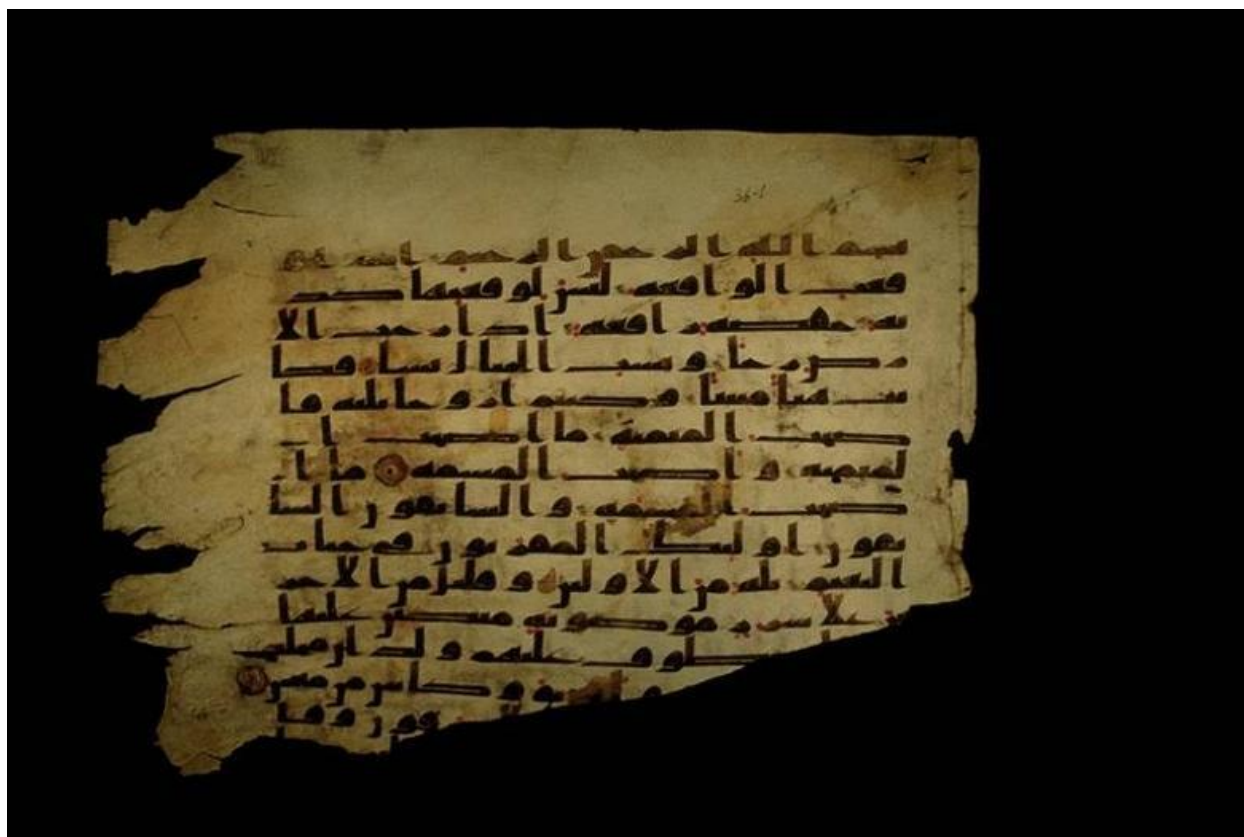 بسم الله الرحمن الرحيم اذا و
قعت الواقعة ليس لوقعتها كذ
بة خفضة رافعة اذا رجت الا
رض رجا وبست الجبال بسا فكا
نت هبا منبثا وكنتم ازوجا ثلثة فا
صحب الميمنة ما اصحب ا
لميمنة واصحب المشمة ما ا
صحب المشمة والسابقون السا
بقون اوليك المقربون في جنات
النعيم ثلة من الاولين وقليل من الاخر
ين على سرر موضونة متكين عليها
يطوف عليهم ولدان مخلد
وكاس من معين
ينزفون وفا